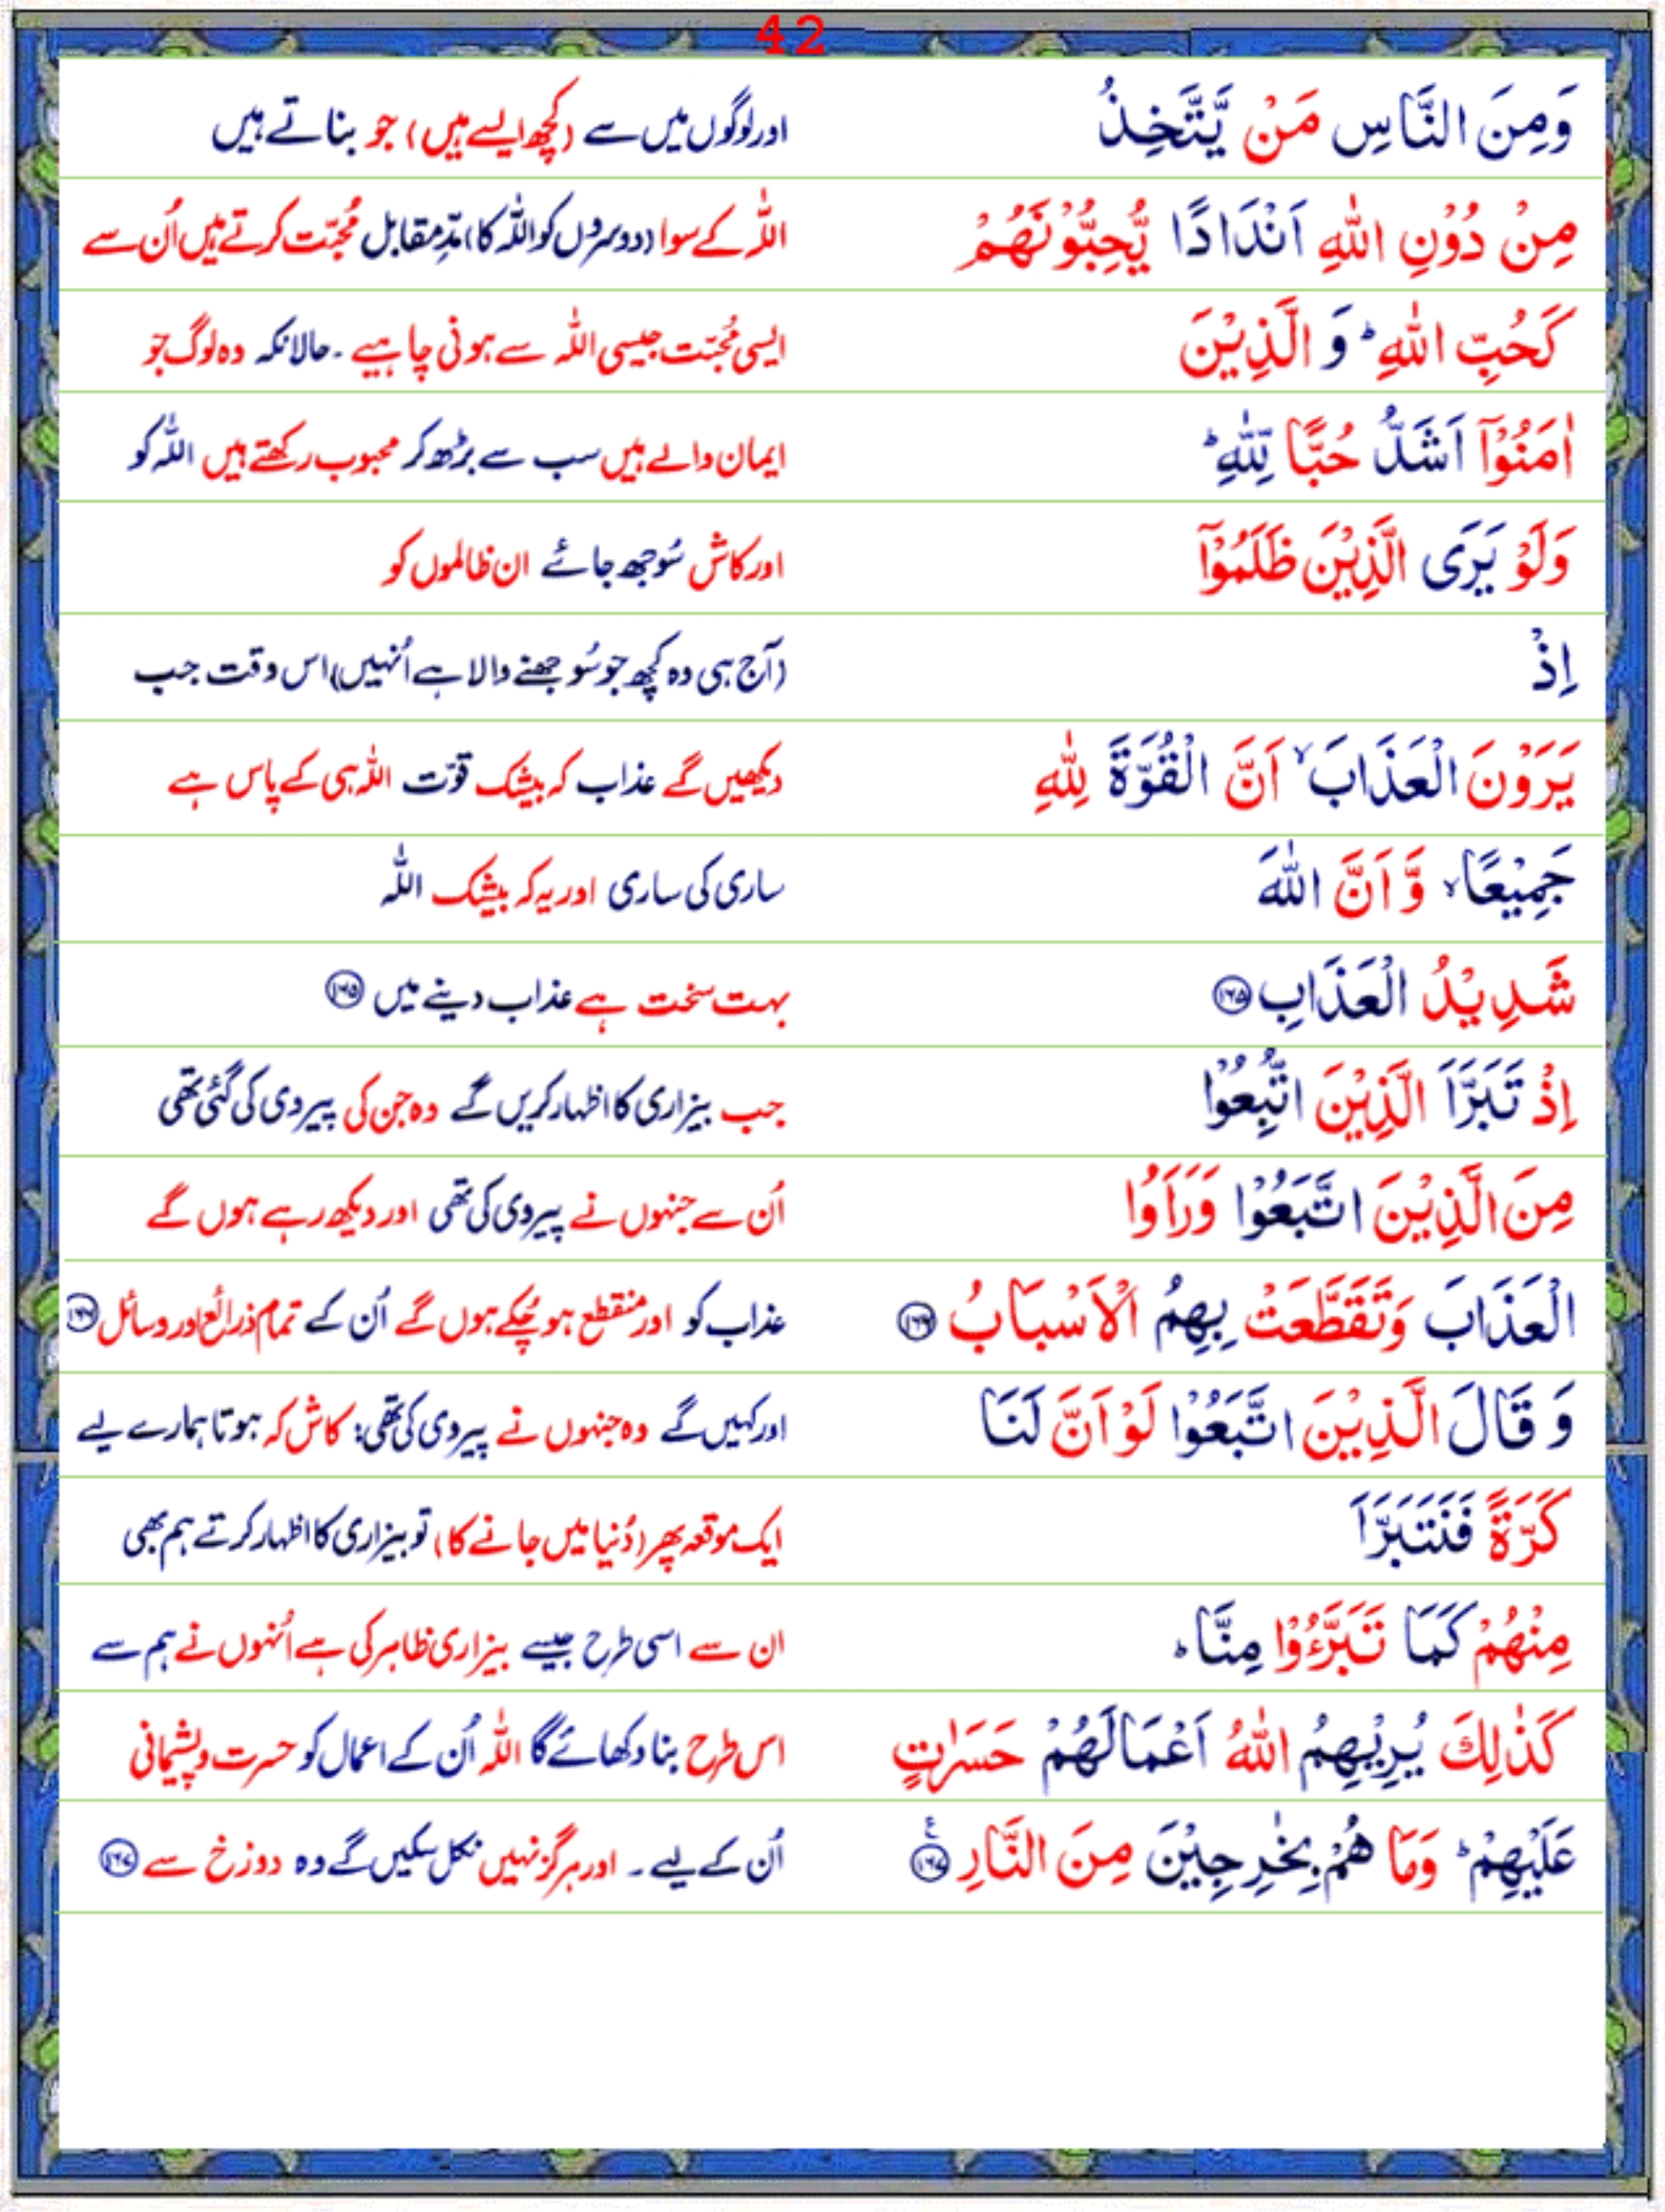 42
وَمِنَ النَّاسِ مَنْ يَّتَّخِذُ اور لوگوں میں سے (کچھ ایسے ہیں) جو بناتے ہیں
مِنْ دُوْنِ اللّٰهِ اَنْدَادًا يُّحِبُّوْنَهُمْ اللّٰہ کے سوا (دوسروں کو اللّٰہ کا) مدِّمقابل مُحبّت کرتے ہیں اُن سے
كَحُبِّ اللّٰهِ ؕ وَ الَّذِيْنَ ایسی مُحبّت جیسی اللّٰہ سے ہونی چاہیے ۔ حالانکہ وہ لوگ جو
اٰمَنُوْٓا اَشَدُّ حُبًّا لِّلّٰهِ ؕ ایمان والے ہیں سب سے بڑھ کر محبوب رکھتے ہیں اللّٰہ کو
وَلَوْ يَرَى الَّذِيْنَ ظَلَمُوْٓا اور کاش سُوجھ جائے ان ظالموں کو
اِذْ (آج ہی وہ کچھ جو سُوجھنے والا ہے اُنہیں) اس وقت جب
يَرَوْنَ الْعَذَابَ ۙ اَنَّ الْقُوَّةَ لِلّٰهِ دیکھیں گے عذاب کہ بیشک قوّت اللّٰہ ہی کے پاس ہے
جَمِيْعًا ۙ وَّ اَنَّ اللّٰهَ ساری کی ساری اور یہ کہ بیشک اللّٰہ
شَدِيْدُ الْعَذَابِ ۝۱۶۵ بہت سخت ہے عذاب دینے میں ۝۱۶۵
اِذْ تَبَرَّاَ الَّذِيْنَ اتُّبِعُوْا جب بیزاری کا اظہار کریں گے وہ جن کی پیروی کی گئی تھی
مِنَ الَّذِيْنَ اتَّبَعُوْا وَرَاَوُا اُن سے جنہوں نے پیروی کی تھی اور دیکھ رہے ہوں گے
الْعَذَابَ وَتَقَطَّعَتْ بِهِمُ الْاَسْبَابُ ۝۱۶۶ عذاب کو اور منقطع ہو چُکے ہوں گے اُن کے تمام ذرائع اور وسائل ۝۱۶۶
وَ قَالَ الَّذِيْنَ اتَّبَعُوْا لَوْ اَنَّ لَنَا اور کہیں گے وہ جنہوں نے پیروی کی تھی: کاش کہ ہوتا ہمارے لیے
كَرَّةً فَنَتَبَرَّاَ ایک موقعہ پھر (دُنیا میں جانے کا) تو بیزاری کا اظہار کرتے ہم بھی
مِنْهُمْ كَمَا تَبَرَّءُوْا مِنَّا ؕ ان سے اسی طرح جیسے بیزاری ظاہر کی ہے اُنہوں نے ہم سے
كَذٰلِكَ يُرِيْهِمُ اللّٰهُ اَعْمَالَهُمْ حَسَرٰتٍ اس طرح بنا دکھائے گا اللّٰہ اُن کے اعمال کو حسرت و پشیمانی
عَلَيْهِمْ ؕ وَمَا هُمْ بِخٰرِجِيْنَ مِنَ النَّارِ ۝۱۶۷ ع اُن کے لیے ۔ اور ہرگز نہیں نکل سکیں گے وہ دوزخ سے ۝۱۶۷